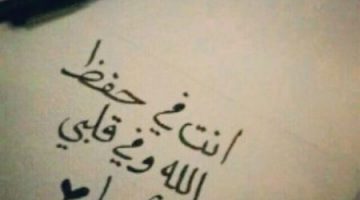 انت في حفظ
الله وفي قلبي